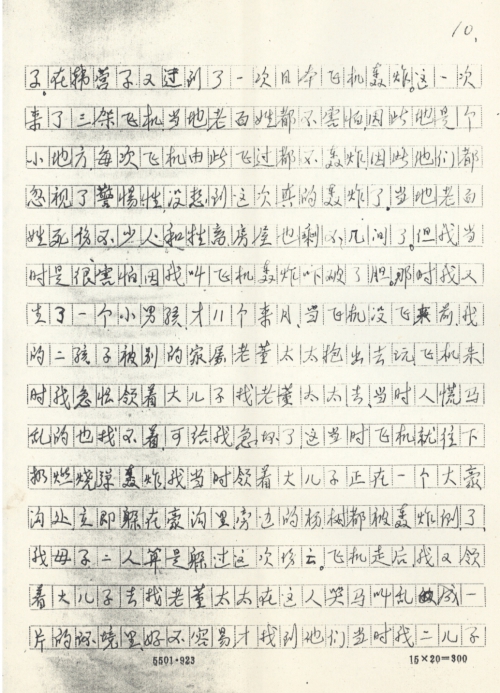 10.
子。在韩营子又过到了一次日本飞机轰炸。这一次
来了三架飞机当地老百姓都不害怕因此地是个
小地方,每次飞机由此飞过都不轰炸,因此他们都
忽视了警惕性,没想到这次真的轰炸了。当地老百
姓死伤不少人和牲畜房屋也剩不几间了。但我当
时是很害怕因我叫飞机轰炸吓破了胆。那时我又
生了一个小男孩,才八个来月,当飞机没飞来前,我
的二孩子被别的家属老董太太抱出去玩飞机来
时我急忙领着大儿子找老董太太去,当时人慌马
乱的也找不着,可给我急坏了,这当时飞机就往下
扔燃烧弹轰炸,我当时领着大儿子正在一个大壕
沟处立即躲在壕沟里旁边的杨树都被轰炸倒了,
我母子二人算是躲过这次灾。飞机走后我又领
着大儿子去找老董太太在这人哭马叫乱成一
片的环境里,好不容易才找到他们当时我二儿子
5501·923
15×20=300